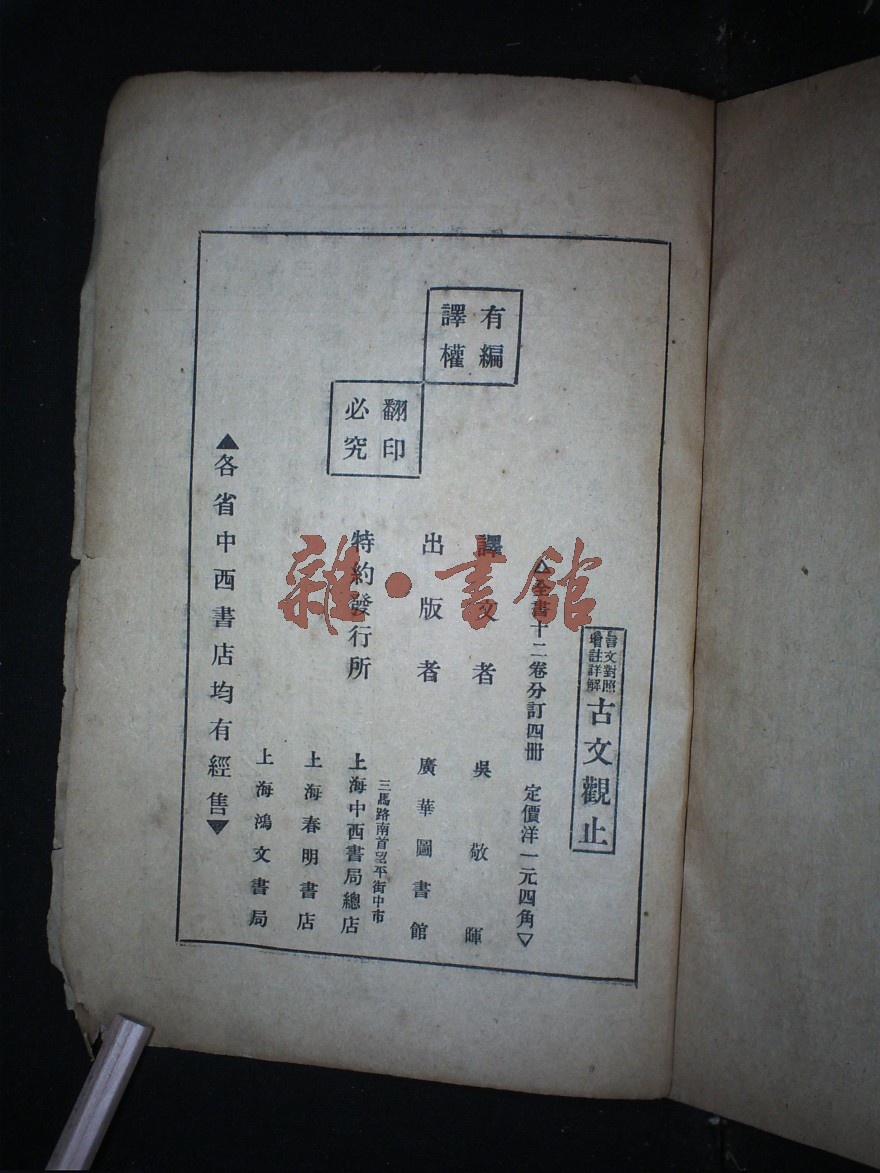 言文對照
增註詳解
古文觀止
△全書十二卷分訂四冊 定價洋一元四角▽
有編
譯權
翻印
必究
譯文者 吳敬暉
出版者 廣華圖書館
特約發行所
三馬路南首望平街中市
上海中西書局總店
上海春明書店
上海鴻文書局
▲各省中西書店均有經售▼
雜·書館